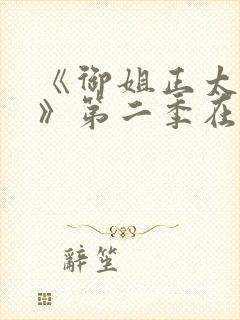 《御姐正大
》第二季在
辭笙